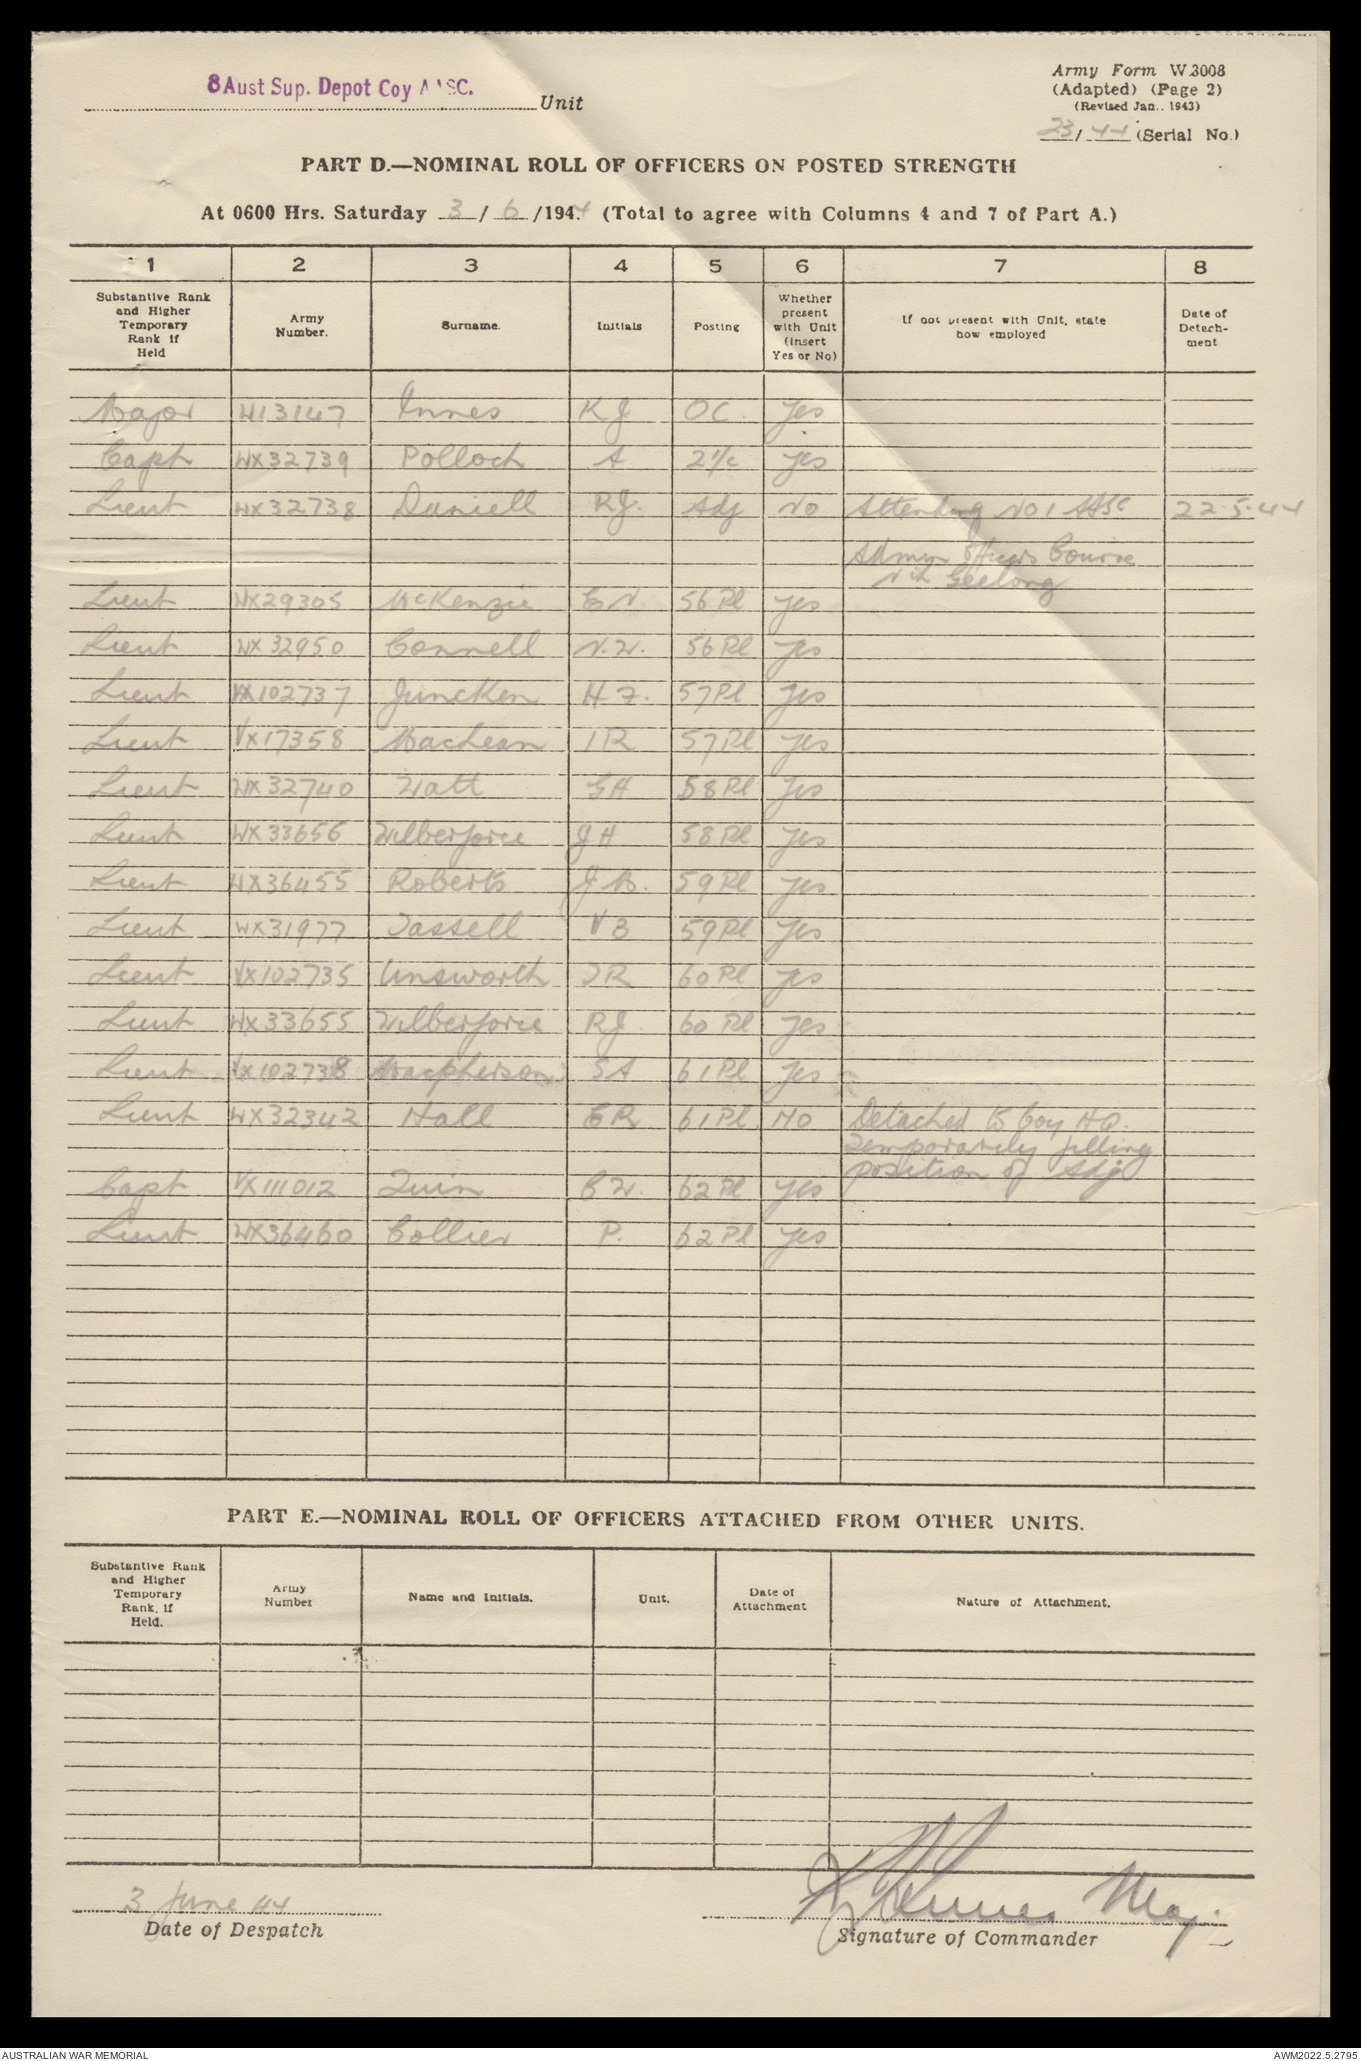 8 Aust Sup. Depot Coy AASC. Unit
Army Form W.3008
(Adapted) (Page 2)
(Revised Jan., 1943)
23/44 (Serial No.)
PART D.—NOMINAL ROLL OF OFFICERS ON POSTED STRENGTH
At 0600 Hrs. Saturday 3/6/1944 (Total to agree with Columns 4 and 7 of Part A.)
1 2 3 4 5 6 7 8
Substantive Rank and Higher Temporary Rank if Held
Army Number.
Surname.
Initials
Posting
Whether present with Unit (Insert Yes or No)
If not present with Unit, state how employed
Date of Detachment
Major W13147 Innes KJ OC Yes
Capt WX32739 Pollock A 2i/c Yes
Lieut WX32738 Daniell RJ. Adj No Attending No 1 AASC 22.5.44
Admin Officers Course
Geelong
Lieut WX29305 McKenzie EN. 56 Pl Yes
Lieut WX32950 Connell N.W. 56 Pl Yes
Lieut VX102737 Juncken H.F. 57 Pl Yes
Lieut VX17358 MacLean IR 57 Pl Yes
Lieut WX32740 Watt GH 58 Pl Yes
Lieut WX33656 Wilberforce JH 58 Pl Yes
Lieut WX36455 Roberts J.B. 59 Pl Yes
Lieut WX31977 Tassell VB 59 Pl Yes
Lieut VX102735 Unsworth JR 60 Pl Yes
Lieut WX33655 Wilberforce RJ 60 Pl Yes
Lieut VX102738 Macpherson SA 61 Pl Yes
Lieut WX32342 Hall ER 61 Pl No Detached to Coy HQ.
Temporarily filling
position of Adj
Capt VX111012 Quin C.W. 62 Pl Yes
Lieut WX36460 Collier P. 62 Pl Yes
PART E.—NOMINAL ROLL OF OFFICERS ATTACHED FROM OTHER UNITS.
Substantive Rank and Higher Temporary Rank, if Held.
Army Number
Name and Initials.
Unit.
Date of Attachment
Nature of Attachment.
3 June 44
Date of Despatch
KJInnes Maj.
Signature of Commander
AUSTRALIAN WAR MEMORIAL
AWM2022.5.2795